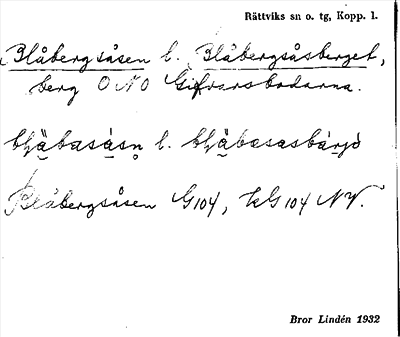 Rättviks sn o. tg, Kopp. l.
Blåbergsåsen l. Blåbergsåsberget,
berg ONO Gifvarsbodarna.
l.
Blåbergsåsen G104, kG104 NV.
Bror Lindén 1932